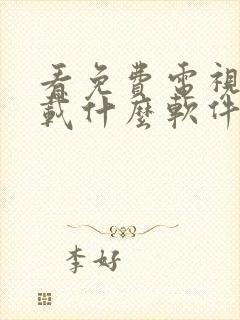 看免費電視
載什麼軟件
李好